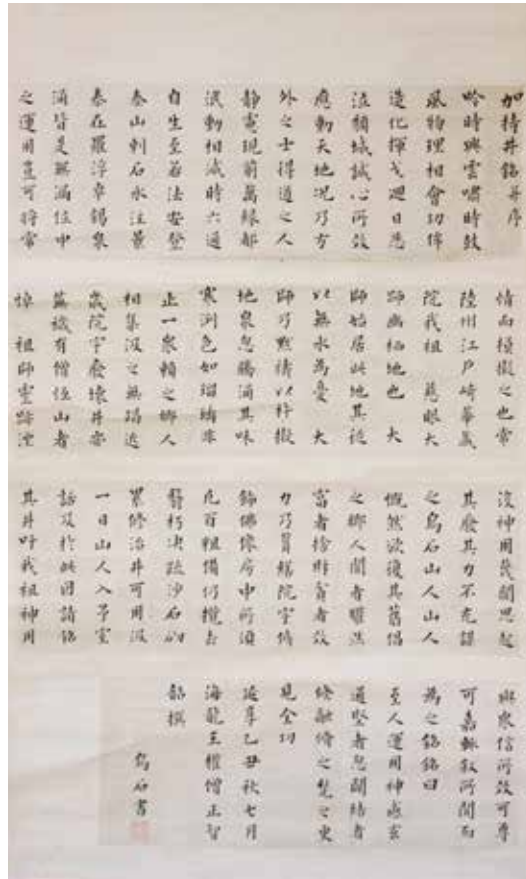 加持井銘并序
吟時興雲嘯時鼓
風物理相會功侔
造化揮戈迴日悲
泣頽城誠心所致
感動天地况乃方
外之士得道之人
靜處現前萬緣都
泯動相滅時六通
自生至若法安登
泰山刺石水注景
泰在羅浮卓錫泉
涌皆是無漏位中
之運用豈可將常
情而模擬之也常
陸州江戶崎華蔵
院我祖 慈眼大
師幽栖地也 大
師始居此地其徒
以無水為憂 大
師乃黙禱以杵撥
地泉忽騰涌其味
寒冽色如瑠璃非
止一衆頼之鄉人
相集汲之無竭近
歳院宇廢壊井亦
蕪穢有僧恒山者
悼 祖師靈跡湮
沒神用莫聞思起
其廢其力不克謀
之烏石山人山人
慨然欲復其舊倡
之鄉人聞者驩然
富者捨財貧者效
力乃買繕院宇修
飾佛像房中所須
凡百粗備仍攪去
翳朽决疏沙石
累修治井可用汲
一日山人入予室
話及於此因請銘
其井吁我祖神用
與衆信所致可尊
可嘉輙叙所聞而
為之銘銘曰
至人運用神惑玄
通堅者忽開結者
倏融脩之甃之更
見全功
延享乙丑秋七月
海龍王權僧正智
韶撰
烏石書